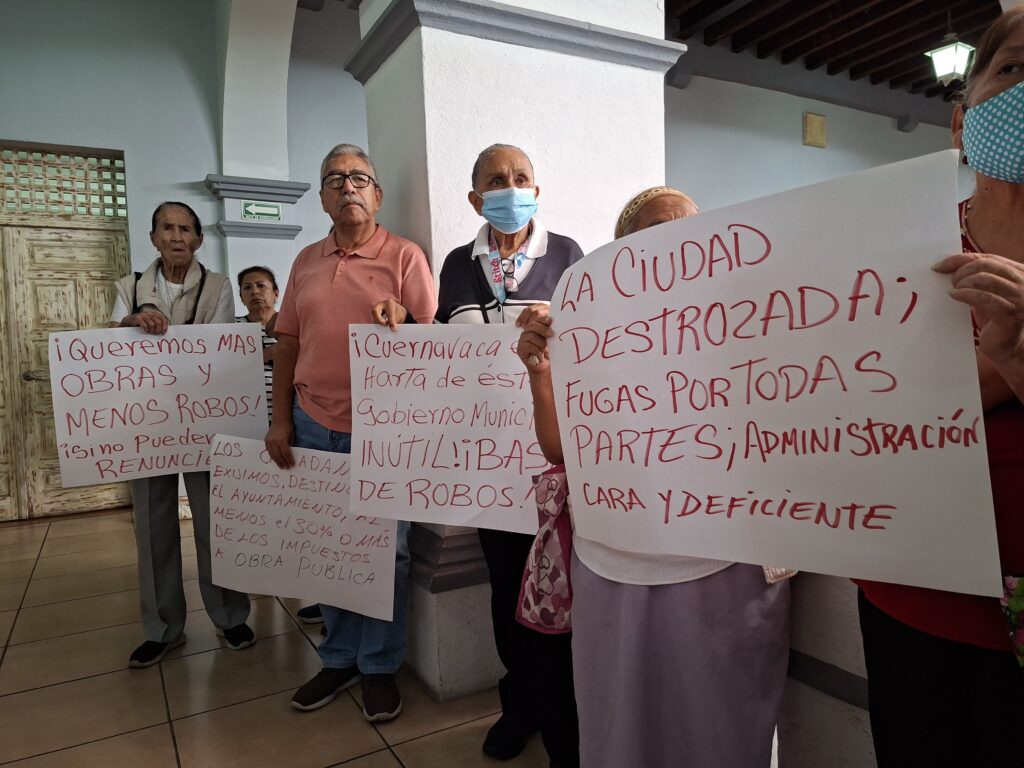 ¡QUEREMOS MAS
OBRAS Y
MENOS ROBOS!
¡Si no PUEDEN
RENUNCI
LOS
EXIJIMOS, DESTIN
EL AYUNTAMIENTO, AL
MENOS el 30% O MAS
DE LOS IMPUESTOS
A OBRA PÚBLICA
¡Cuernavaca e
Harta de ést
Gobierno Munic
INÚTIL!¡BAS
DE ROBOS!
LA CIUDAD
DESTROZADA;
FUGAS POR TODAS
PARTES; ADMINISTRACIÓN
CARA Y DEFICIENTE